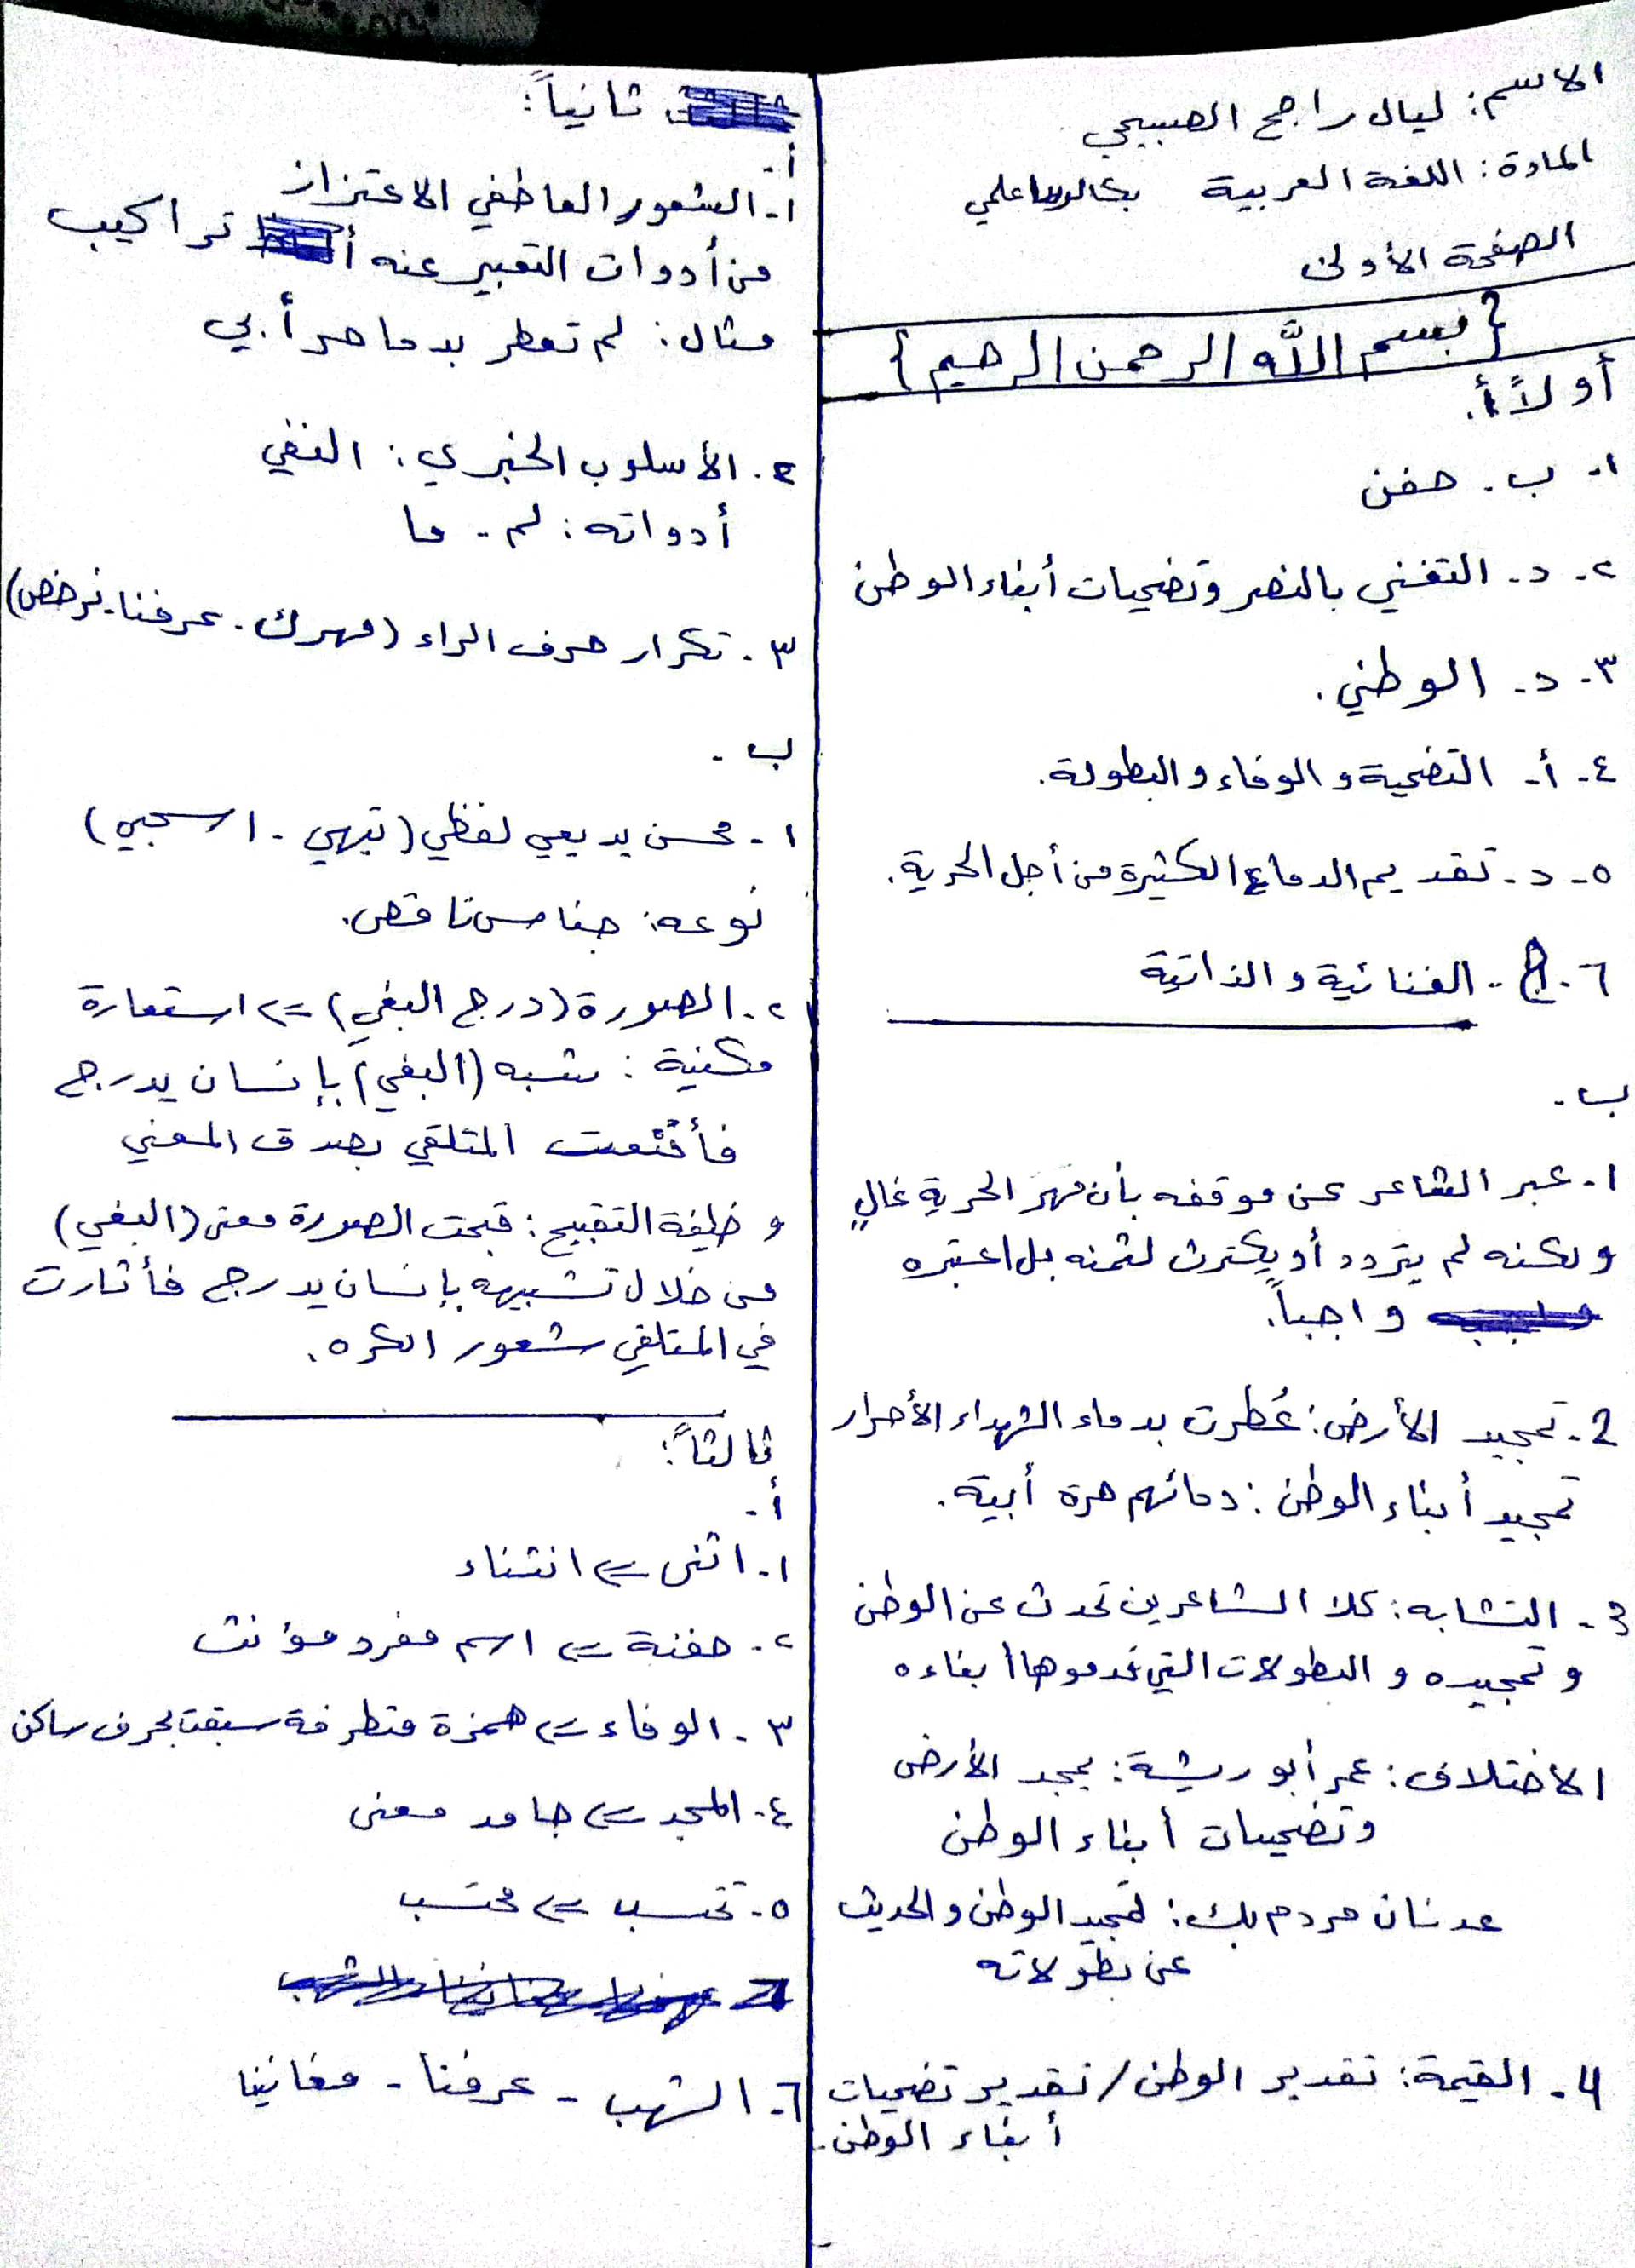 الاسم: ليال راجح الصبيحي
المادة: اللغة العربية بكالوريا علمي
الصفحة الأولى
{بسم الله الرحمن الرحيم}
أولاً أ.
١- ب. حفن
٢- د. التغني بالنصر وتضحيات أبناء الوطن
٣- د. الوطني.
٤- أ- التضحية والوفاء والبطولة.
٥- د- تقديم الدماء الكثيرة من أجل الحرية.
٦. ج. الغنائية والذاتية
ب.
١- عبر الشاعر عن موقفه بأن مهر الحرية غالٍ
ولكنه لم يتردد أو يكترث لثمنه بل اعتبره
واجباً.
2- تمجيد الأرض: عُطرت بدماء الشهداء الأحرار
تمجيد أبناء الوطن: دمائهم حرة أبية.
3- التشابه: كلا الشاعرين تحدث عن الوطن
وتمجيده والبطولات التي قدموها أبناءه
الاختلاف: عمر أبو ريشة: يمجد الأرض
وتضحيات أبناء الوطن
عدنان مردم بك: تمجيد الوطن والحديث
عن بطولاته
4- القيمة: تقدير الوطن / تقدير تضحيات
أبناء الوطن.
ثانياً:
أ-
١- الشعور العاطفي الاعتزاز
من أدوات التعبير عنه تراكيب
مثال: لم تعطر بدما حر أبي
٢. الأسلوب الخبري: النفي
أدواته: لم - ما
٣. تكرار حرف الراء (مهرك. عرفنا. نرخص)
ب.
١- محسن بديعي لفظي (تيهي - اسحبي)
نوعه: جناس ناقص.
٢- الصورة (درج البغي) <= استعارة
مكنية: شبه (البغي) بإنسان يدرج
فأقنعت المتلقي بصدق المعنى
وظيفة التقبيح: قبحت الصورة معنى (البغي)
من خلال تشبيهه بإنسان يدرج فأثارت
في المتلقي شعور الكره.
ثالثاً:
أ-
١- اثنى <= انثناء
٢- حفنة <= اسم مفرد مؤنث
٣- الوفاء <= همزة متطرفة سبقت بحرف ساكن
٤- المجد <= جامد معنى
٥- تحتسب <= محتسب
٦- الشهب - عرفنا - مغانينا